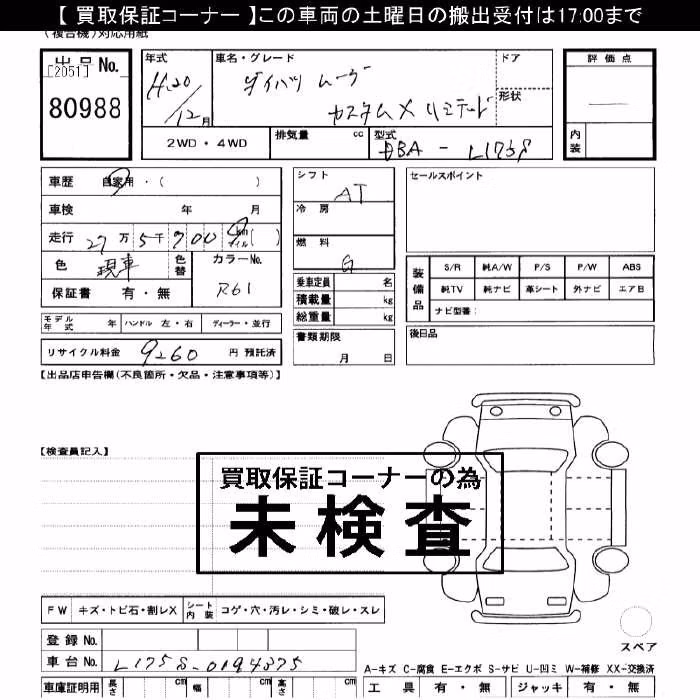 【 買取保証コーナー 】この車両の土曜日の搬出受付は17:00まで
(複合機)対応用紙
出品 No.
[2051]
80988
年式
H20/12月
車名・グレード
ダイハツ ムーヴ
カスタムX リミテード
ドア
形状
2WD・4WD
排気量 cc
型式
DBA - L175S
評価点
内装
車歴 自家用・( )
車検 年 月
走行 27万5千900 km マイル( )
色 現車
色替
カラーNo.
R61
保証書 有・無
モデル年式 年
ハンドル 左・右
ディーラー・並行
リサイクル料金 9260 円 預託済
シフト
AT
冷房
燃料
G
乗車定員 名
積載量 kg
総重量 kg
書類期限
月 日
セールスポイント
装備品
S/R 純A/W P/S P/W ABS
純TV 純ナビ 革シート 外ナビ エアB
ナビ型番:
後日品
【出品店申告欄(不良箇所・欠品・注意事項等)】
【検査員記入】
買取保証コーナーの為
未検査
FW キズ・トビ石・割レX
シート内装 コゲ・穴・汚レ・シミ・破レ・スレ
登録 No.
車台 No. L175S-0194375
車庫証明用 長さ cm 幅 cm 高さ cm
スペア
A-キズ C-腐食 E-エクボ S-サビ U-凹ミ W-補修 XX-交換済
工具 有・無 ジャッキ 有・無